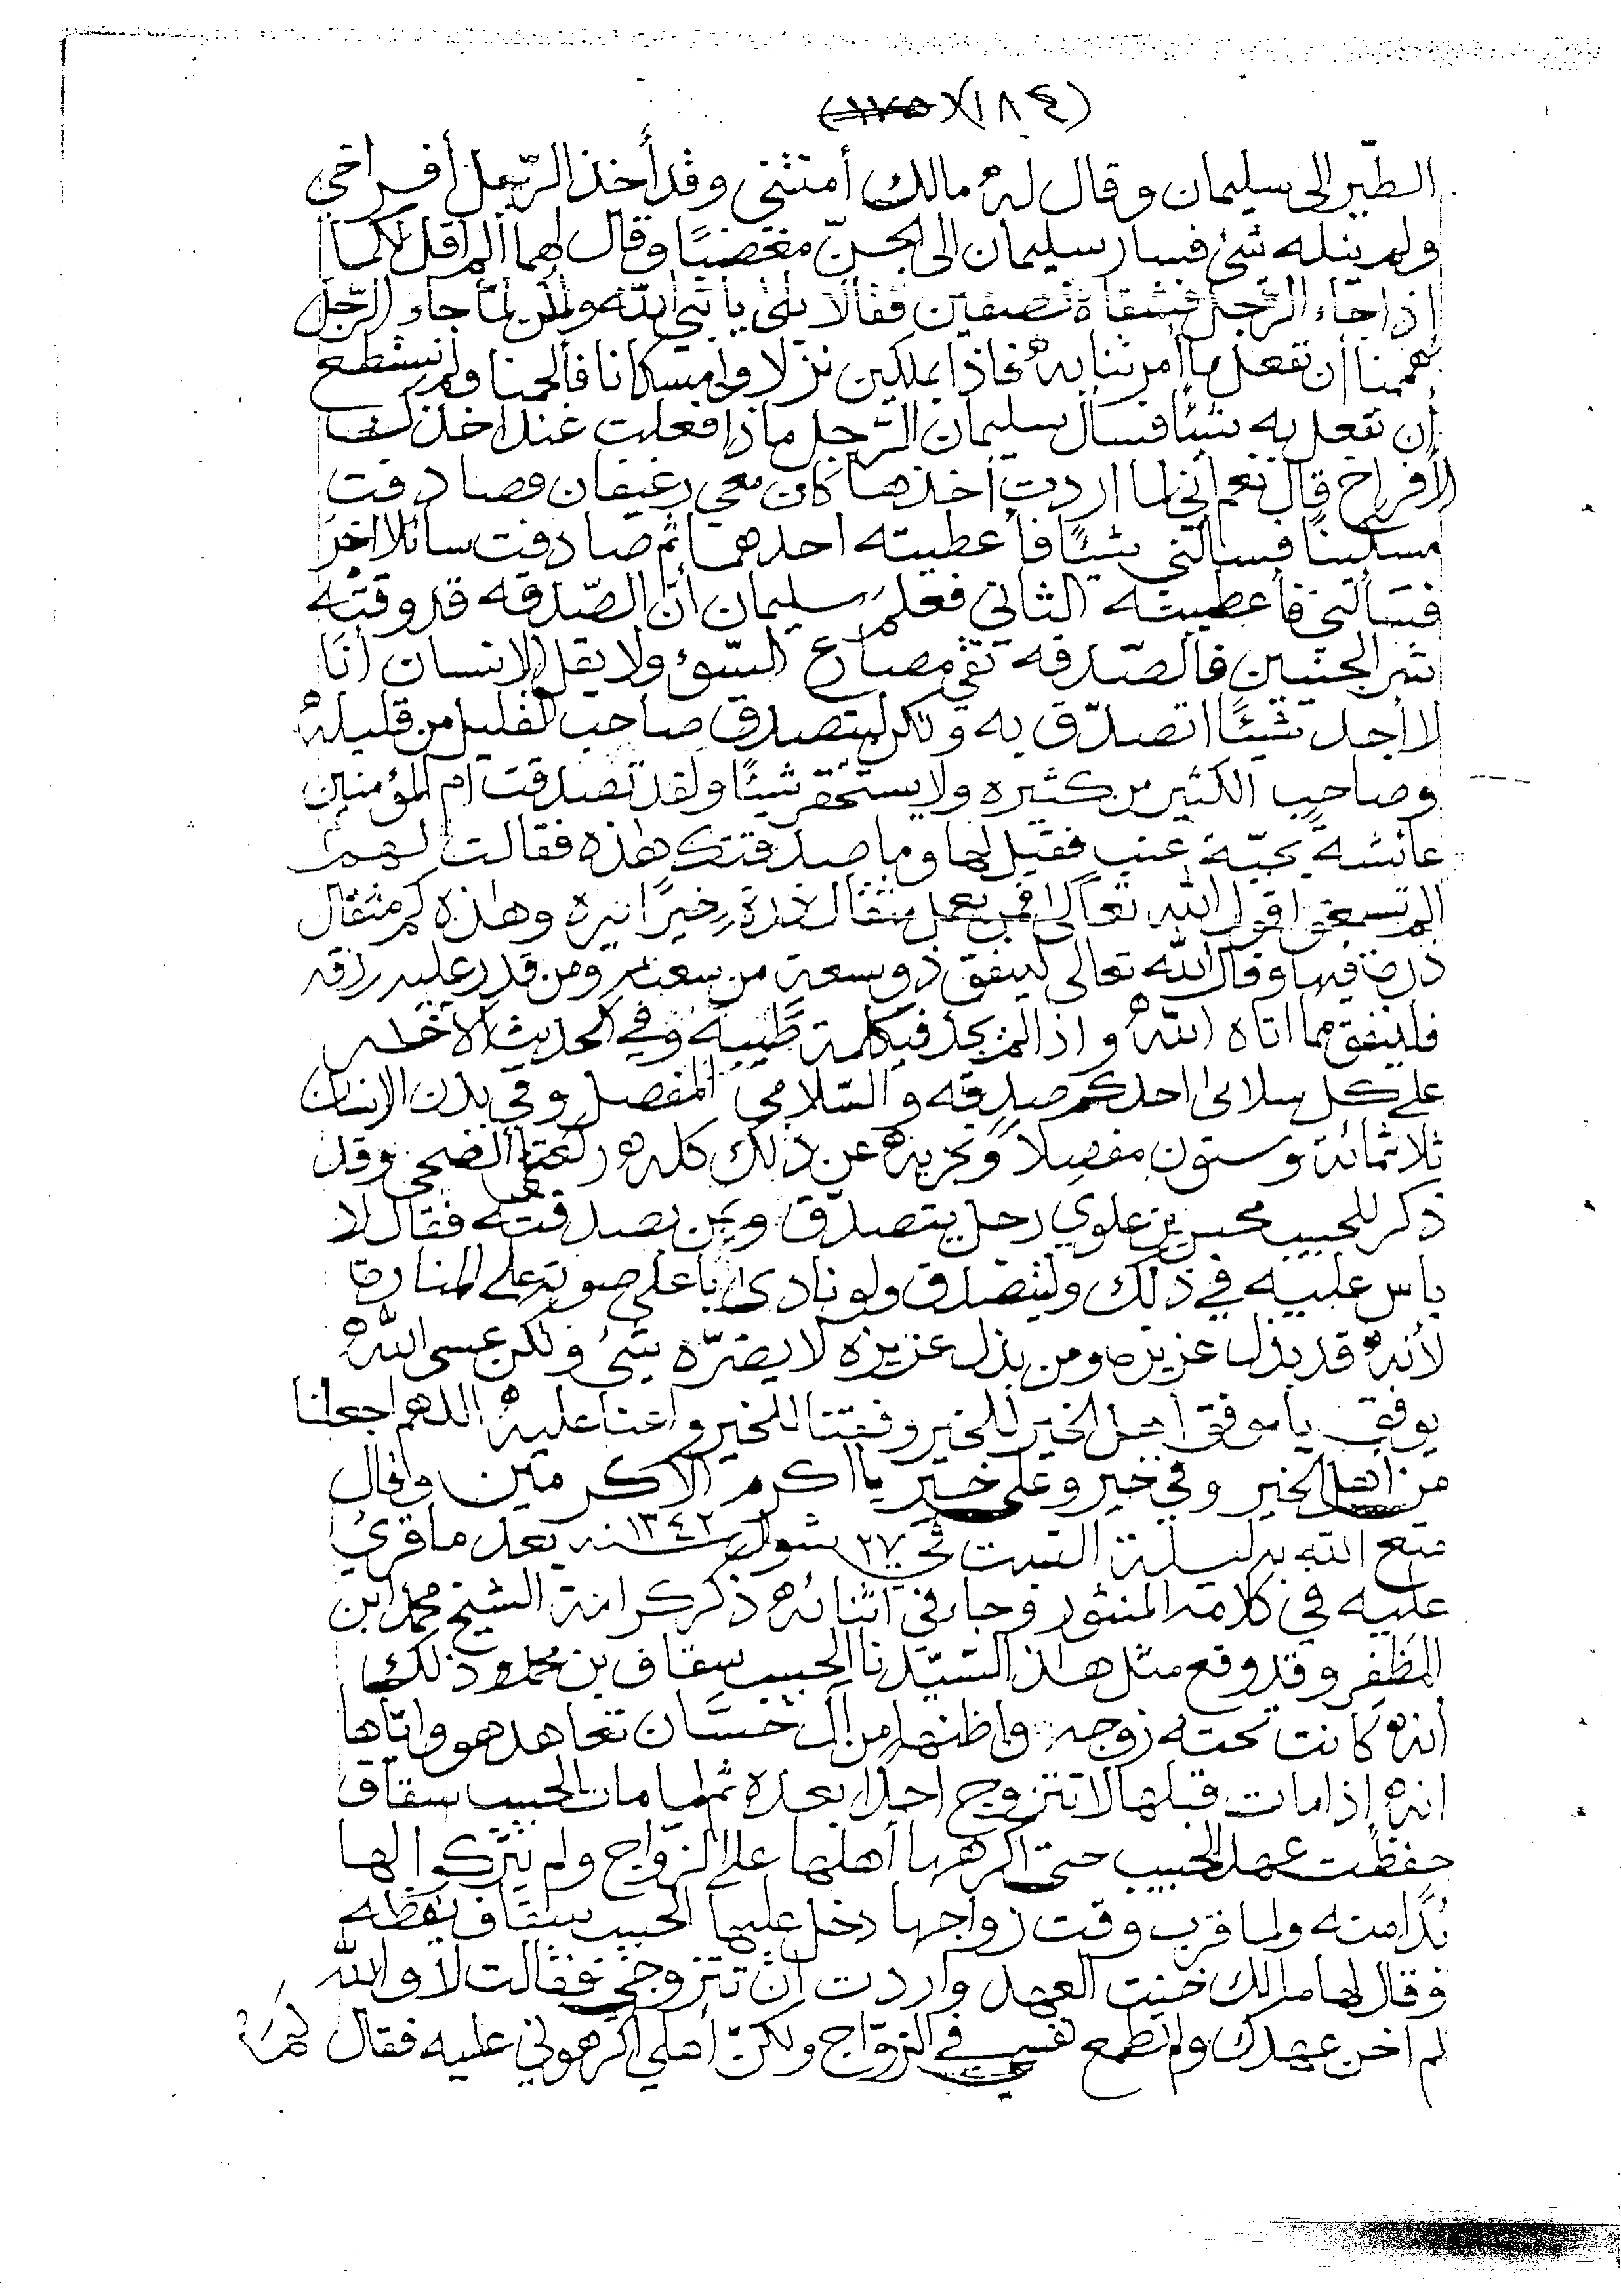 (١٨٤)(١٧٥)
الطّير الى سليمان وقال له مالك أمنتني وقد أخذ الرّجل أفراخي
ولم ينله شئ فسار سليمان الى الجنّ مغضبًا وقال لهما ألم اقل لكما
اذا جاء الرّجل فشقاه نصفين فقالا بلى يا نبي الله ولكن لمّا جاء الرّجل
هممنا أن نفعل ما أمرتنا به فاذا بملكين نزلا وامسكانا فألجمنا ولم نستطع
أن نفعل به شيئًا فسأل سليمان الرّجل ماذا فعلت عند اخذك
الأفراخ قال نعم أني لما اردت أخذها كان معي رغيفان فصادفت
مسكينًا فسالني شيئًا فأعطيته احدهما ثم صادفت سائلا اخر
فسَألني فأعطيته الثاني فعلم سليمان أنّ الصّدقه قد وقته
شر الجنّيين فالصّدقه تقي مصارع السّوء ولا يقل الإنسان أنَا
لا أجد شيئًا اتصدّق به ولكن ليتصدق صاحب القليل من قليله
وصاحب الكثير من كثيره ولا يستحقر شيئًا ولقد تصدقت ام المؤمنين
عائشة بحبّة عنب فقيل لها وما صدقتك هذه فقالت لهم
الم تسمعوا قول الله تعالى فمن يعمل مثقال ذرة خيرًا يره وهذه كم مثقال
ذرة فيها وقال الله تعالى لينفق ذو سعة من سعته ومن قدر عليه رزقه
فلينفق مما اتاه الله واذا لم يجد فبكلمة طيبه وفي الحديث الأخر
على كل سلامى احدكم صدقه والسّلامي المفصل وفي بدن الإنسان
ثلاثمائة وستون مفصلاً وتجزيه عن ذلك كله ركعتي الضحى وقد
ذكر للحبيب محسن بن علوي رجل يتصدّق ويمن بصدقته فقال لا
باس عليه في ذلك وليتصدق ولو نادى باعلى صوته على المنارة
لأنه قد بذل عزيزه ومن بذل عزيزه لا يضرّه شئ ولكن عسى الله
يوفق يا موفق أهل الخير للخير وفقنا للخير واعنا عليه اللهم اجعلنا
من أهل الخير وفي خير وعلى خير يا اكرم الاكرمين وقال
متع الله به ليلة السبت في ٢٧ شوال سنه ١٣٤٢ بعد ما قرئ
عليه في كلامه المنثور وجاء في اثنائه ذكر كرامة الشيخ محمد ابن
المظفر وقد وقع مثل هذا لسيّدنا الحبيب سقاف بن محمد وذلك
انه كانت تحته زوجه واظنها من آل حسَّان تعاهد هو وايّاها
انه إذا مات قبلها لا تتزوج احدًا بعده ثم لما مات الحبيب سقاف
حفظت عهد الحبيب حتى اكرهها أهلها على الزّواج ولم يتركوا لها
بُدًّا منه ولما قرب وقت زواجها دخل عليها الحبيب سقاف يقظه
وقال لها مالك خنت العهد واردت أن تتزوجي فقالت لا والله
لم اخن عهدك ولم تطمع نفسي في الزوّاج ولكنّ أهلي اكرهوني عليه فقال لها